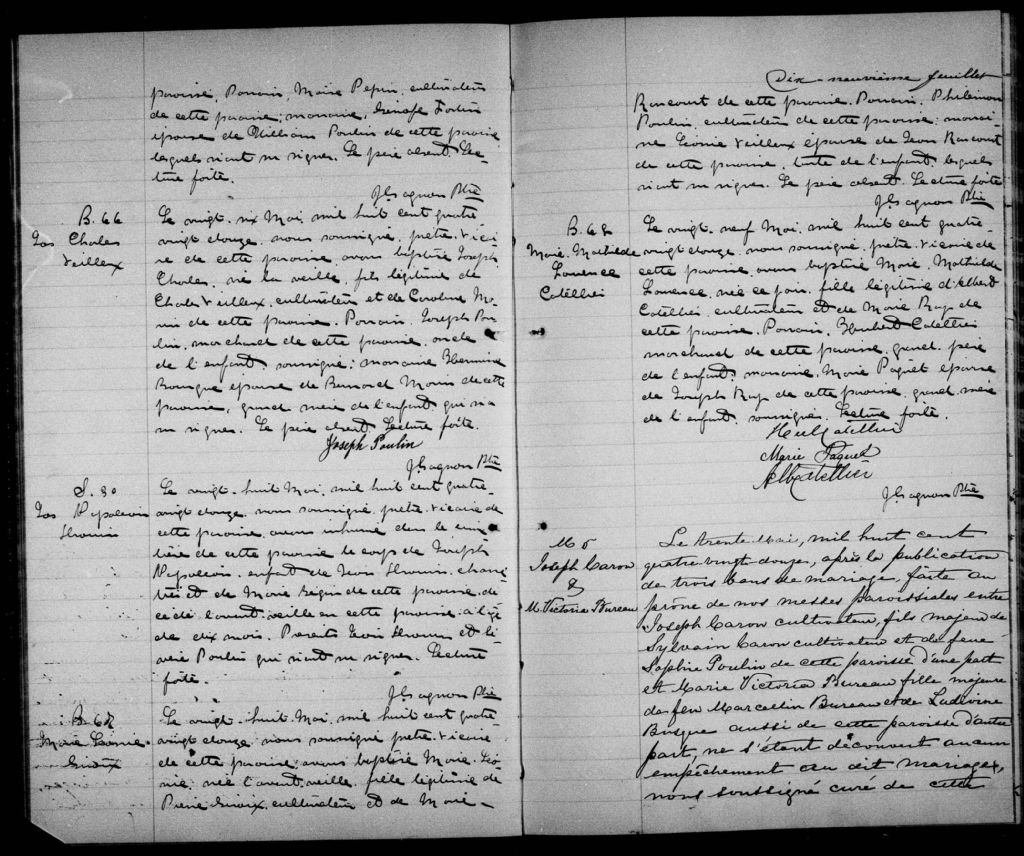 paroisse, Parrain, Marie Pepin, cultivateur
de cette paroisse, marraine, Fortin
épouse de William Poulin de cette paroisse
lesquels n'ont su signer. Le père absent. Lec-
ture faite.
J Gagnon Ptre
B. 66
Jos Charles
Veilleux
Le vingt-six Mai, mil huit cent quatre
vingt douze, nous soussigné, prêtre vicai-
re de cette paroisse avons baptisé Joseph
Charles, né la veille, fils légitime de
Charles Veilleux, cultivateur et de Caroline Mo-
rin de cette paroisse. Parrain, Joseph Pou-
lin, marchand de cette paroisse, oncle
de l'enfant soussigné; marraine Hermine
épouse de Bernard Morin de cette
paroisse, grand mère de l'enfant, qui n'a
su signer. Le père absent. Lecture faite.
Joseph Poulin
J Gagnon Ptre
S. 30
Jos Napoleon
Le vingt-huit Mai, mil huit cent quatre-
vingt douze, nous soussigné, prêtre vicaire de
cette paroisse, avons inhumé dans le cime-
tière de cette paroisse le corps de Joseph
Napoleon, enfant de Jean
et de Marie Bégin de cette paroisse, dé-
cédé l'avant-veille en cette paroisse à l'âge
de dix mois. Présents Jean et
Poulin qui n'ont su signer. Lecture
faite.
J Gagnon Ptre
B. 67
Marie Léonie
Giroux
Le vingt-huit Mai, mil huit cent quatre-
vingt douze, nous soussigné prêtre-vicaire
de cette paroisse, avons baptisé Marie Léo-
nie, née l'avant-veille, fille légitime de
Pierre Giroux, cultivateur et de Marie-
Dix-neuvième feuillet
Rancourt de cette paroisse. Parrain, Philémon
Poulin, cultivateur de cette paroisse; marrai-
ne Léonie Veilleux épouse de Jean Rancourt
de cette paroisse, tante de l'enfant, lesquels
n'ont su signer. Le père absent. Lecture faite
J Gagnon Ptre
B. 68
Marie Mathilda
Laurence
Letellier
Le vingt-neuf Mai, mil huit cent quatre-
vingt douze, nous soussigné, prêtre-vicaire de
cette paroisse, avons baptisé Marie Mathilda
Laurence, née ce jour, fille légitime d'Albert
Letellier, cultivateur et de Marie de
cette paroisse. Parrain, Letellier
marchand de cette paroisse, grand-père
de l'enfant; marraine, Marie Paquet épouse
de Joseph de cette paroisse, grand-mère
de l'enfant soussignés. Lecture faite.
Letellier
Marie Paquet
Alb Letellier
J Gagnon Ptre
M 5
Joseph Caron
&
M. Victoria Bureau
Le trente Mai, mil huit cent
quatre-vingt-douze, après la publication
de trois bans de mariage, faite au
prône de nos messes paroissiales entre
Joseph Caron cultivateur, fils majeur de
Sylvain Caron cultivateur et de feue
Sophie Poulin de cette paroisse d'une part
et Marie Victoria Bureau fille majeure
de feu Marcellin Bureau et de Ludivine
Bosque aussi de cette paroisse d'autre
part, ne s'étant découvert aucun
empêchement au dit mariage,
nous soussigné curé de cette